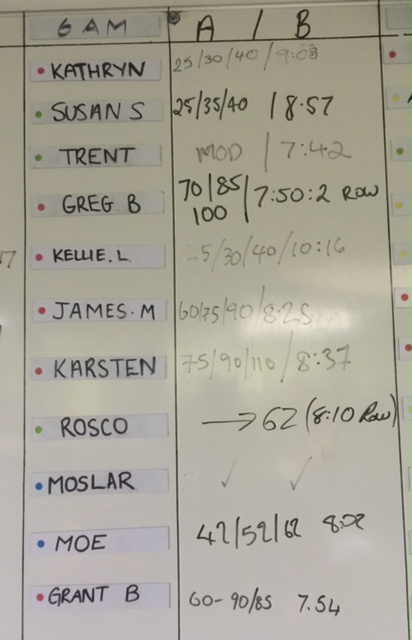 6AM A / B
KATHRYN 25/30/40 /9:03
SUSAN S 25/35/40 / 8:57
TRENT MOD / 7:42
GREG. B 70/85/ 100 /7:50:2 ROW
KELLIE. L 25/30/40/10:16
JAMES. M 60/75/90/8:25
KARSTEN 75/90/110 / 8:37
ROSCO → 62 (8:10 Row)
MOSLAR ✓ ✓
MOE 42/52/62 8:02
GRANT B 60-90/85 7.54